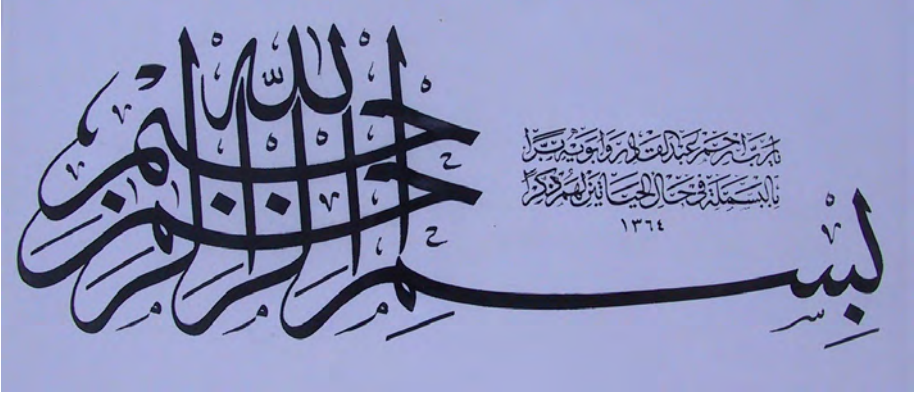 بِسْمِ اللهِ الرَّحْمٰنِ الرَّحِيمِ
يا رب ارحم عبدك وأبويه برا
بالبسملة في حال الحياتين لهم ذكرا
١٣٦٤